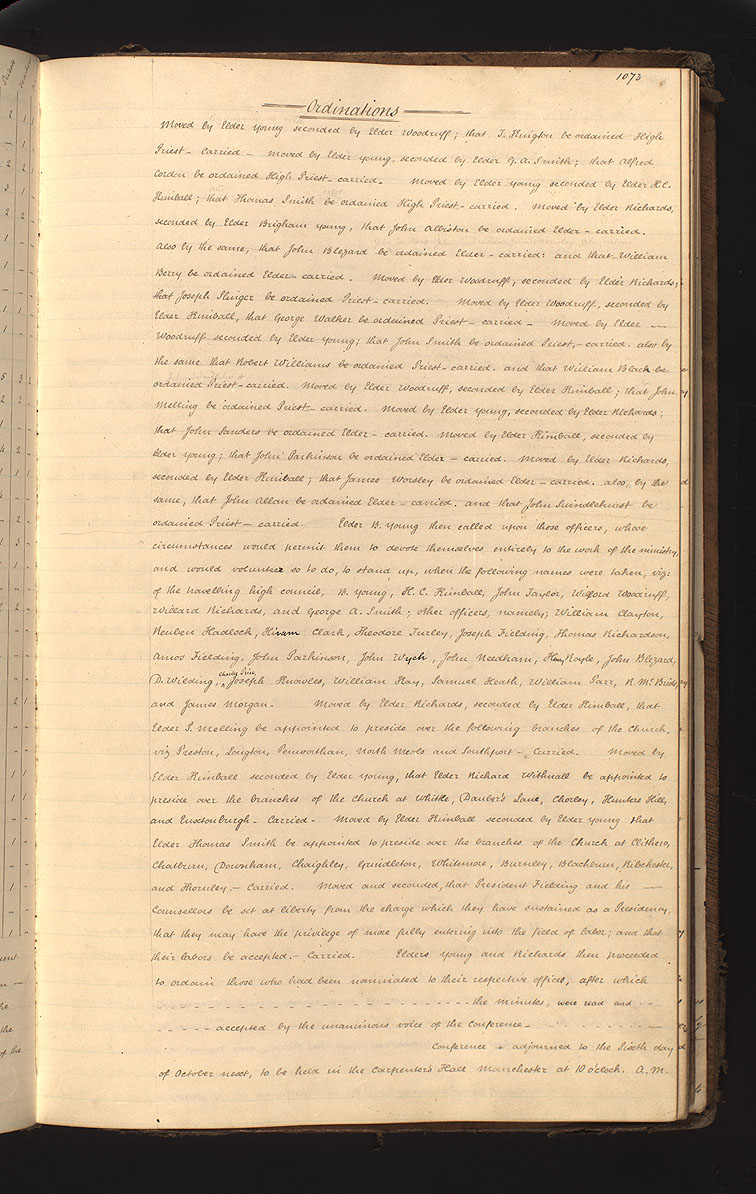 1073
Ordinations
Moved by Elder Young seconded by Elder Woodruff; that T. Kington be ordained High
Priest - carried - moved by Elder Young, seconded by Elder G. A. Smith; that Alfred
Cordon be ordained High Priest - carried - Moved by Elder Young seconded by Elder H. C.
Kimball; that Thomas Smith be ordained High Priest - carried. Moved by Elder Richards,
seconded by Elder Brigham Young, that John Albiston be ordained Elder - carried.
Also by the same, that John Blezard be ordained Elder - carried: and that William
Berry be ordained Elder - carried. Moved by Elder Woodruff, seconded by Elder Richards;
that Joseph Slinger be ordained Priest - carried. Moved by Elder Woodruff, seconded by
Elder Kimball, that George Walker be ordained Priest - carried - Moved by Elder —
Woodruff seconded by Elder Young; that John Smith be ordained Priest, - carried. also by
the same that Robert Williams be ordained Priest - carried. and that William Black be
ordained Priest - carried. Moved by Elder Woodruff, seconded by Elder Kimball; that John
Melling be ordained Priest - carried. Moved by Elder Young, seconded by Elder Richards;
that John Sanders be ordained Elder - carried. Moved by Elder Kimball, seconded by
Elder Young; that John Parkinson be ordained Elder - carried. Moved by Elder Richards,
seconded by Elder Kimball; that James Worsley be ordained Elder - carried. also, by the
same, that John Allan be ordained Elder - carried. and that John Swindlehurst be
ordained Priest - carried. Elder B. Young then called upon those officers, whose
circumstances would permit them to devote themselves entirely to the work of the ministry,
and would volunteer so to do, to stand up, when the following names were taken, viz:
of the travelling high council, B. Young, H. C. Kimball, John Taylor, Wilford Woodruff,
Willard Richards, and George A. Smith; other officers, namely; William Clayton,
Reuben Hadlock, Hiram Clark, Theodore Turley, Joseph Fielding, Thomas Richardson,
Amos Fielding, John Parkinson, John Wych, John Needham, Henry Royle, John Blezard,
D. Wilding, Joseph Knowles, William Kay, Samuel Heath, William Parr, R. McBride
and James Morgan - Moved by Elder Richards, seconded by Elder Kimball, that
Elder P. Melling be appointed to preside over the following branches of the Church,
viz Preston, Longton, Penwortham, North Meols and Southport - Carried. Moved by
Elder Kimball seconded by Elder Young, that Elder Richard Withnall be appointed to
preside over the branches of the Church at Whittle, Dauber's Lane, Chorley, Hunters Hill,
and Euxtonburgh - Carried - Moved by Elder Kimball seconded by Elder Young that
Elder Thomas Smith be appointed to preside over the branches of the Church at Clithero,
Chatburn, Downham, Chaighley, Grindleton, Whitemore, Burnley, Blackburn, Ribchester,
and Thornley. - Carried. Moved and seconded, that President Fielding and his —
Counsellors be set at liberty from the charge which they have sustained as a Presidency,
that they may have the privilege of more fully entering into the field of labor; and that
their labors be accepted. - Carried. Elders Young and Richards then proceeded
to ordain those who had been nominated to their respective offices, after which
the minutes, were read and
accepted by the unanimous voice of the Conference -
Conference - adjourned to the Sixth day
of October next, to be held in the Carpenter's Hall Manchester at 10 o'clock. A.M.